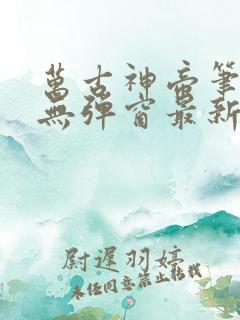 萬古神帝筆
無彈窗最新
尉遲羽婷
未任同意禁止轉載